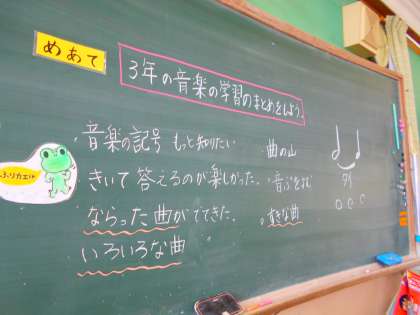 めあて
3年の音楽の学習のまとめをしよう。
音楽の記号 もっと知りたい
曲の山
きいて答えるのが楽しかった。
音ぷをよむ
タイ
ならった曲がでてきた。
すきな曲
いろいろな曲
ふりカエル